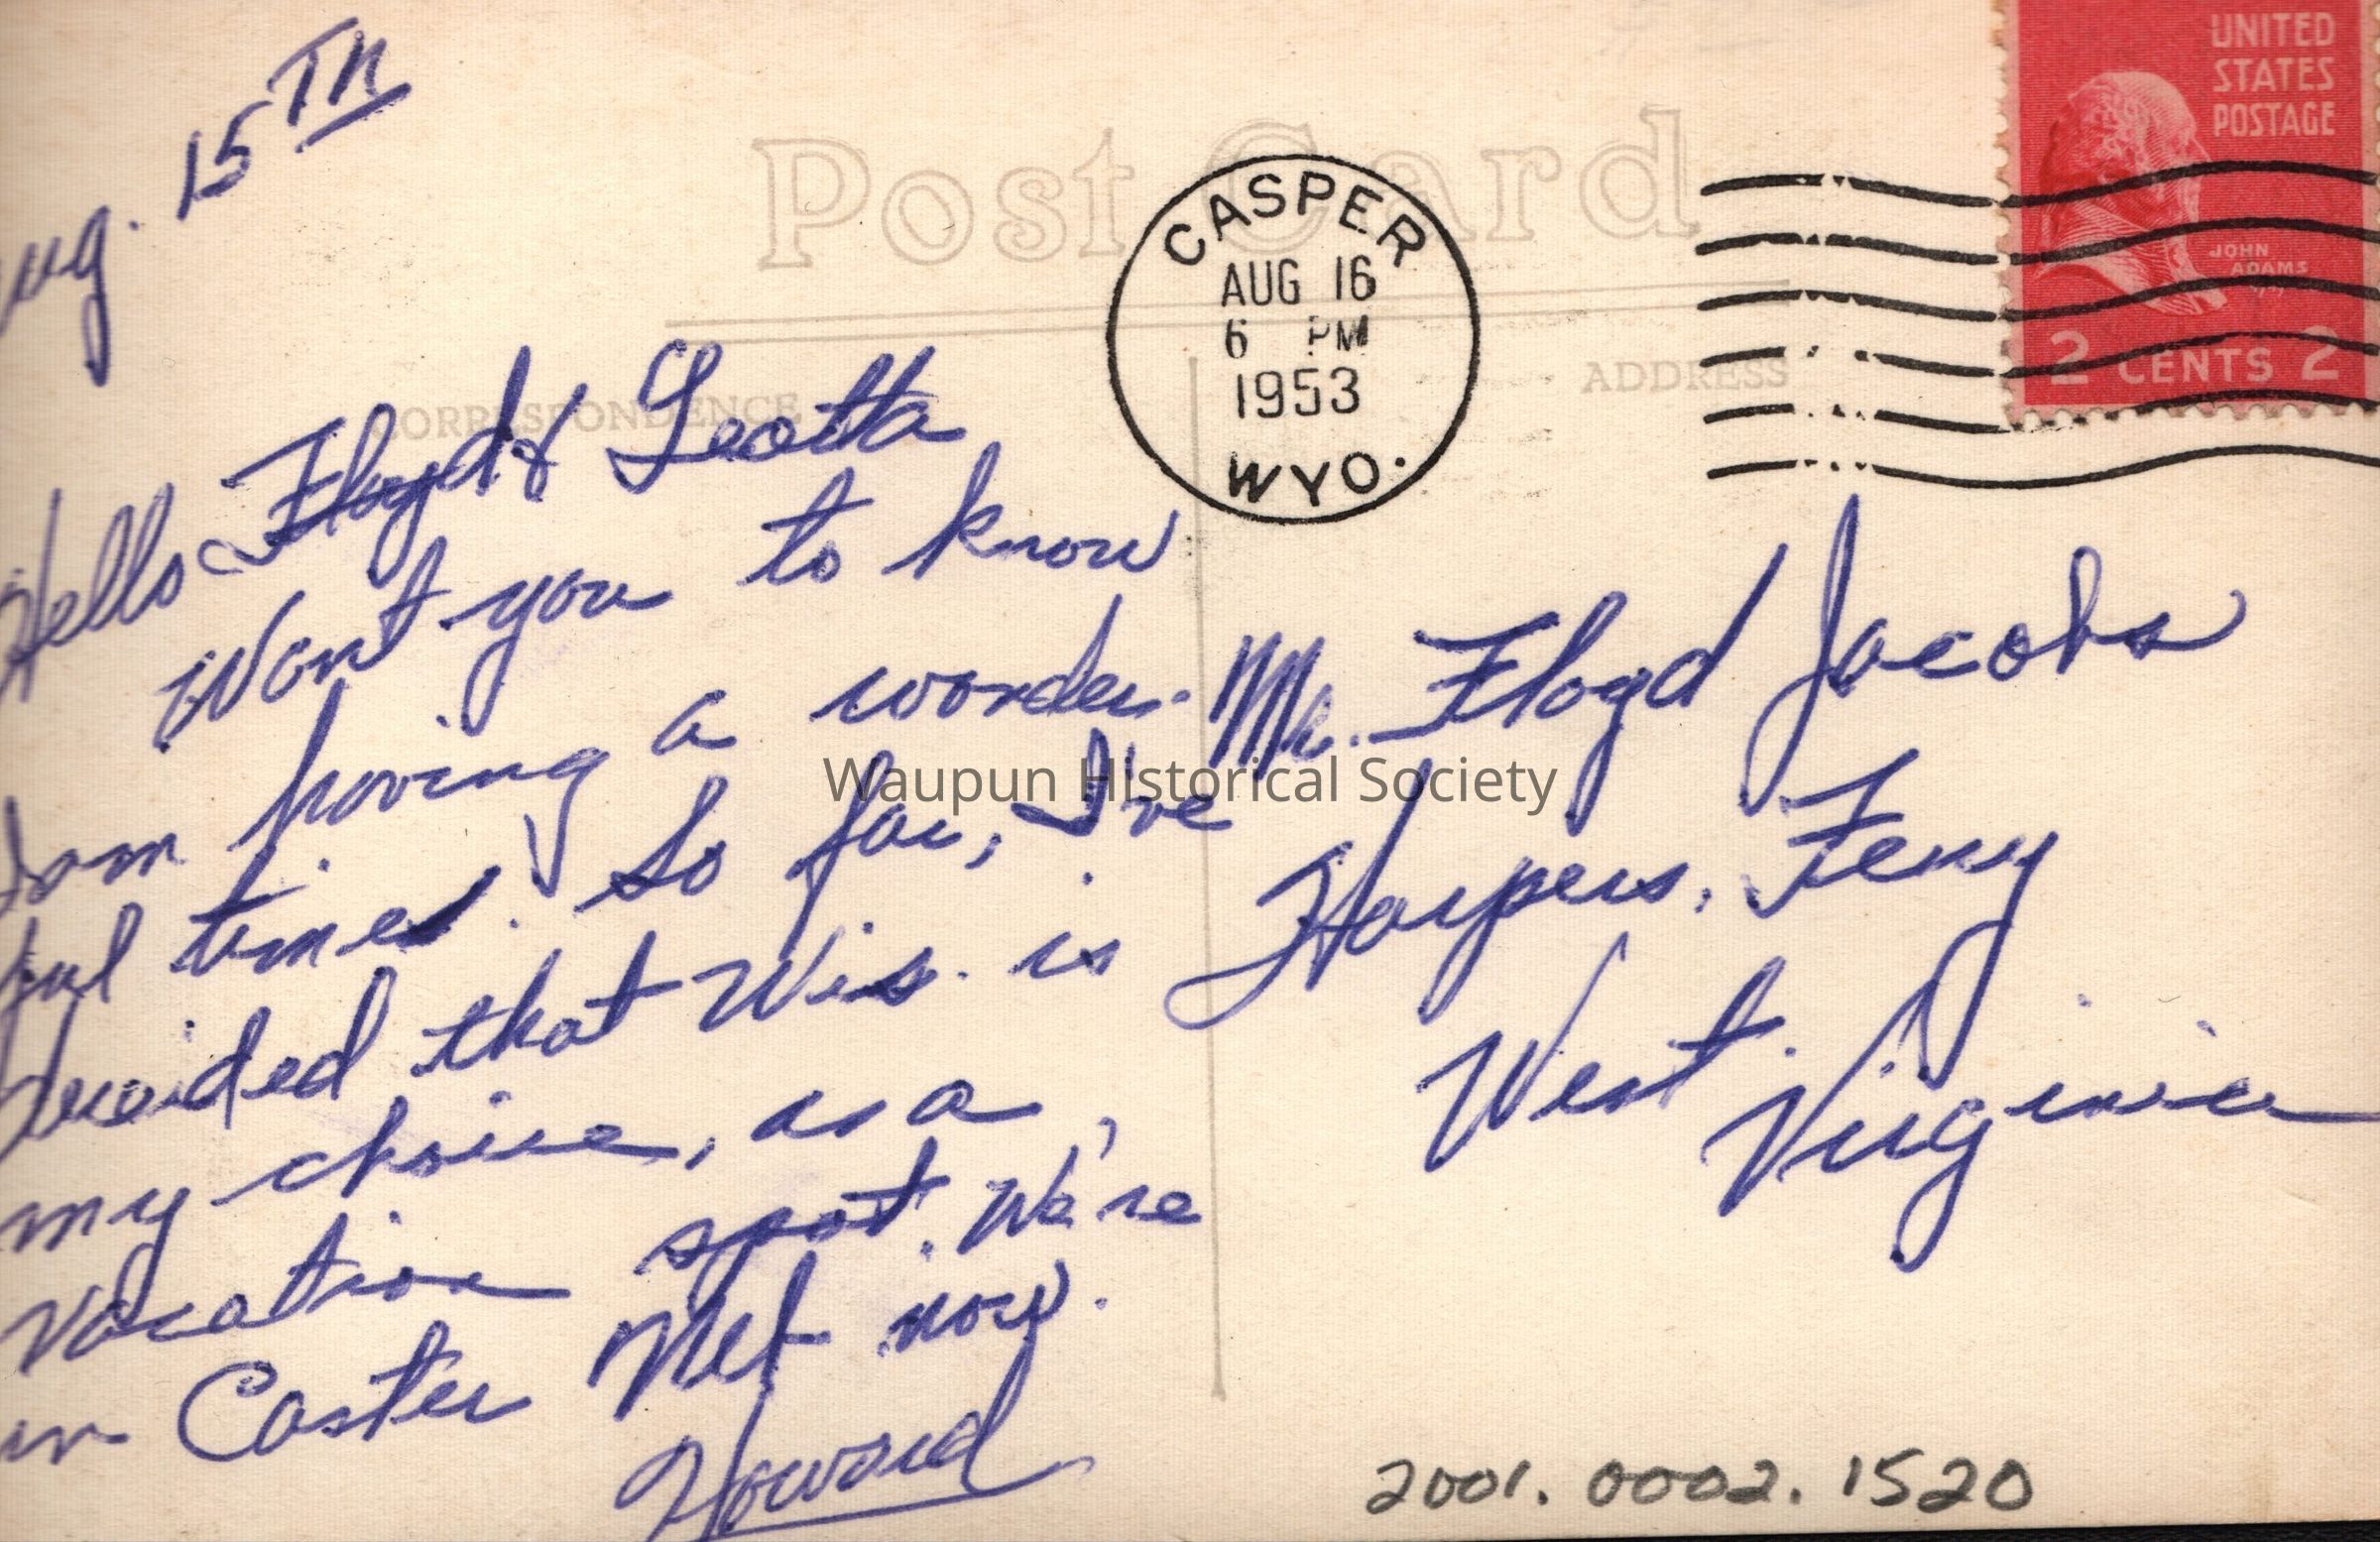 Aug. 15TH
Post Card
CORRESPONDENCE
ADDRESS
CASPER
AUG 16
6 PM
1953
WYO.
UNITED
STATES
POSTAGE
JOHN
ADAMS
2 CENTS 2
Hello Floyd & Leotta
Want you to know
I am having a wonder-
ful times. So far, I've
decided that Wis. is
my choice, as a
vacation spot. We're
in Caster now.
Howard
Mr. Floyd Jacobs
Harpers, Ferry
West Virginia
Waupun Historical Society
2001.0002.1520